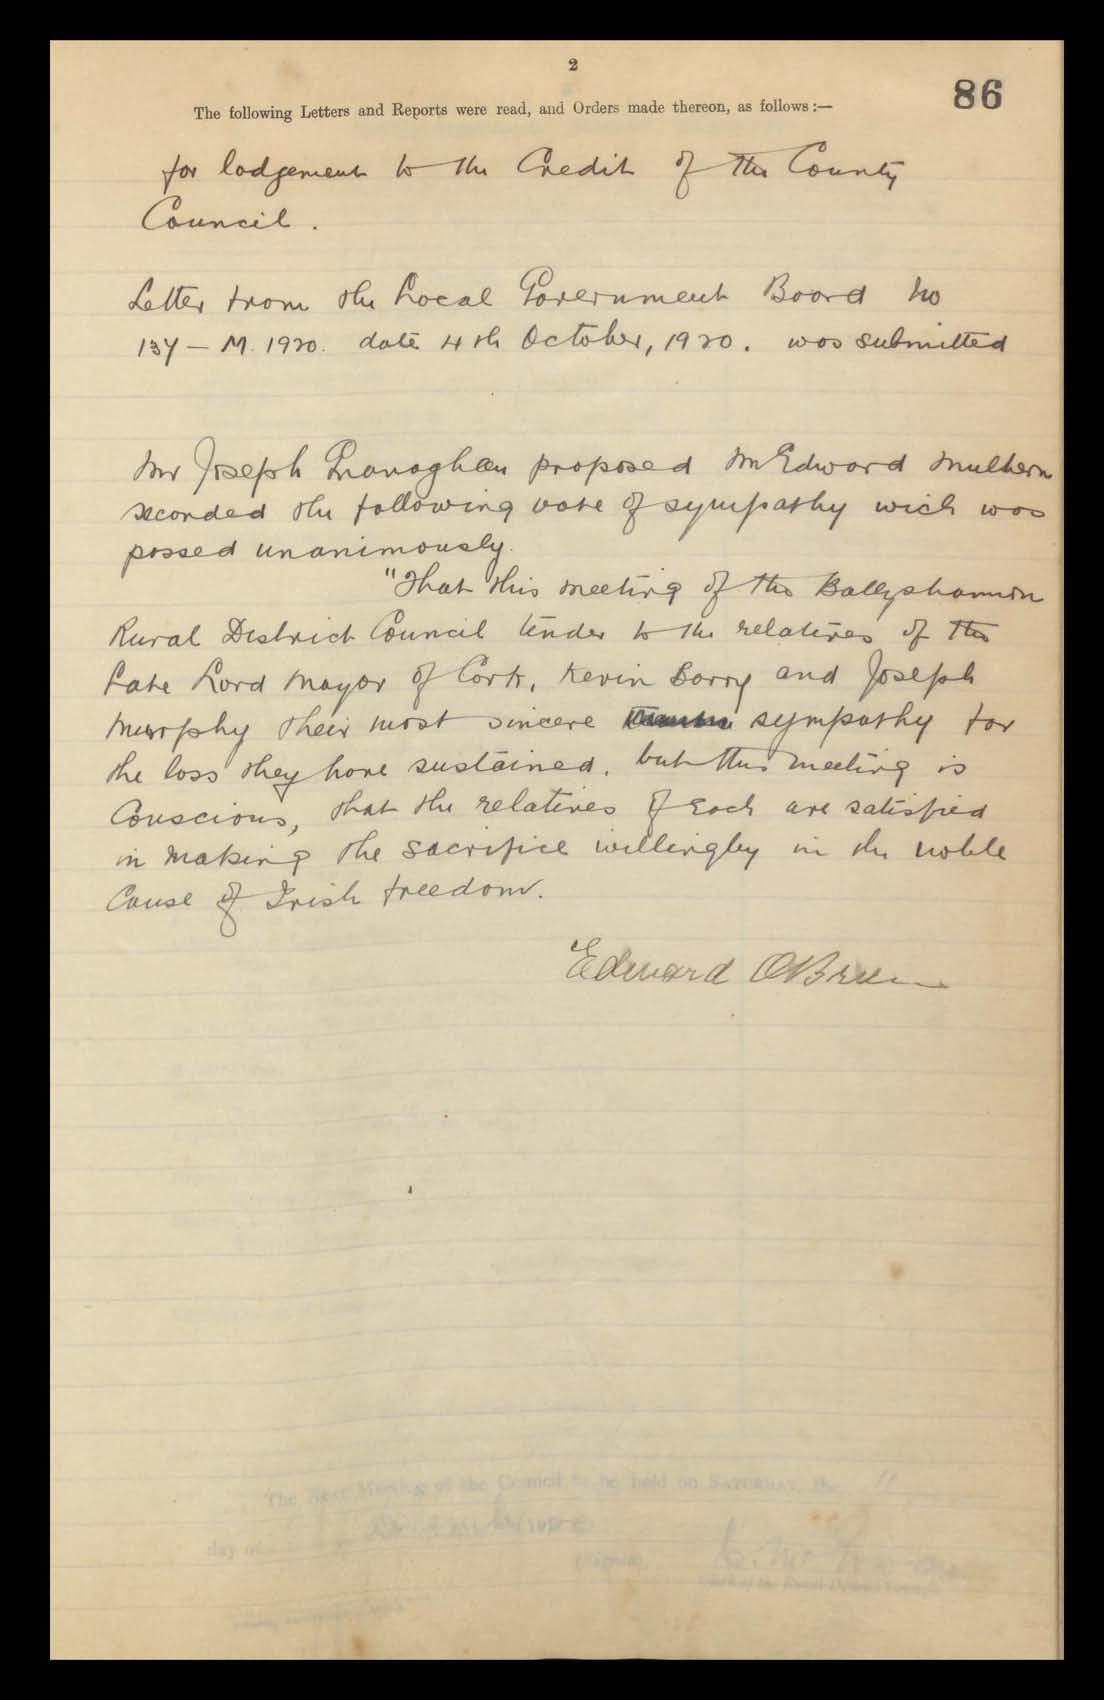 2
86
The following Letters and Reports were read, and Orders made thereon, as follows :—
for lodgement to the Credit of the County
Council.
Letter from the Local Government Board No
137 – M. 1920. date 4th October, 1920. was submitted
Mr Joseph Monaghan proposed Mr Edward Mulhern
seconded the following vote of sympathy wich was
passed unanimously.
"That this meeting of the Ballyshannon
Rural District Council tender to the relatives of the
Late Lord Mayor of Cork, Kevin Barry and Joseph
Murphy their most sincere sympathy for
the loss they have sustained. but this meeting is
Conscious, that the relatives of each are satisfied
in making the sacrifice willingly in the noble
Cause of Irish freedom.
Edward OBrien
The Next Meeting of the Council to be held on SATURDAY, the 11
day of
(Signed)